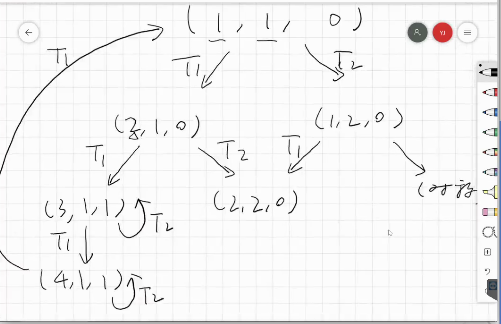 (1, 1, 0)
T1
T1
T2
(2, 1, 0)
(1, 2, 0)
T1
T2
T1
(3, 1, 1)
T2
(2, 2, 0)
T1
(4, 1, 1)
T2
YJ